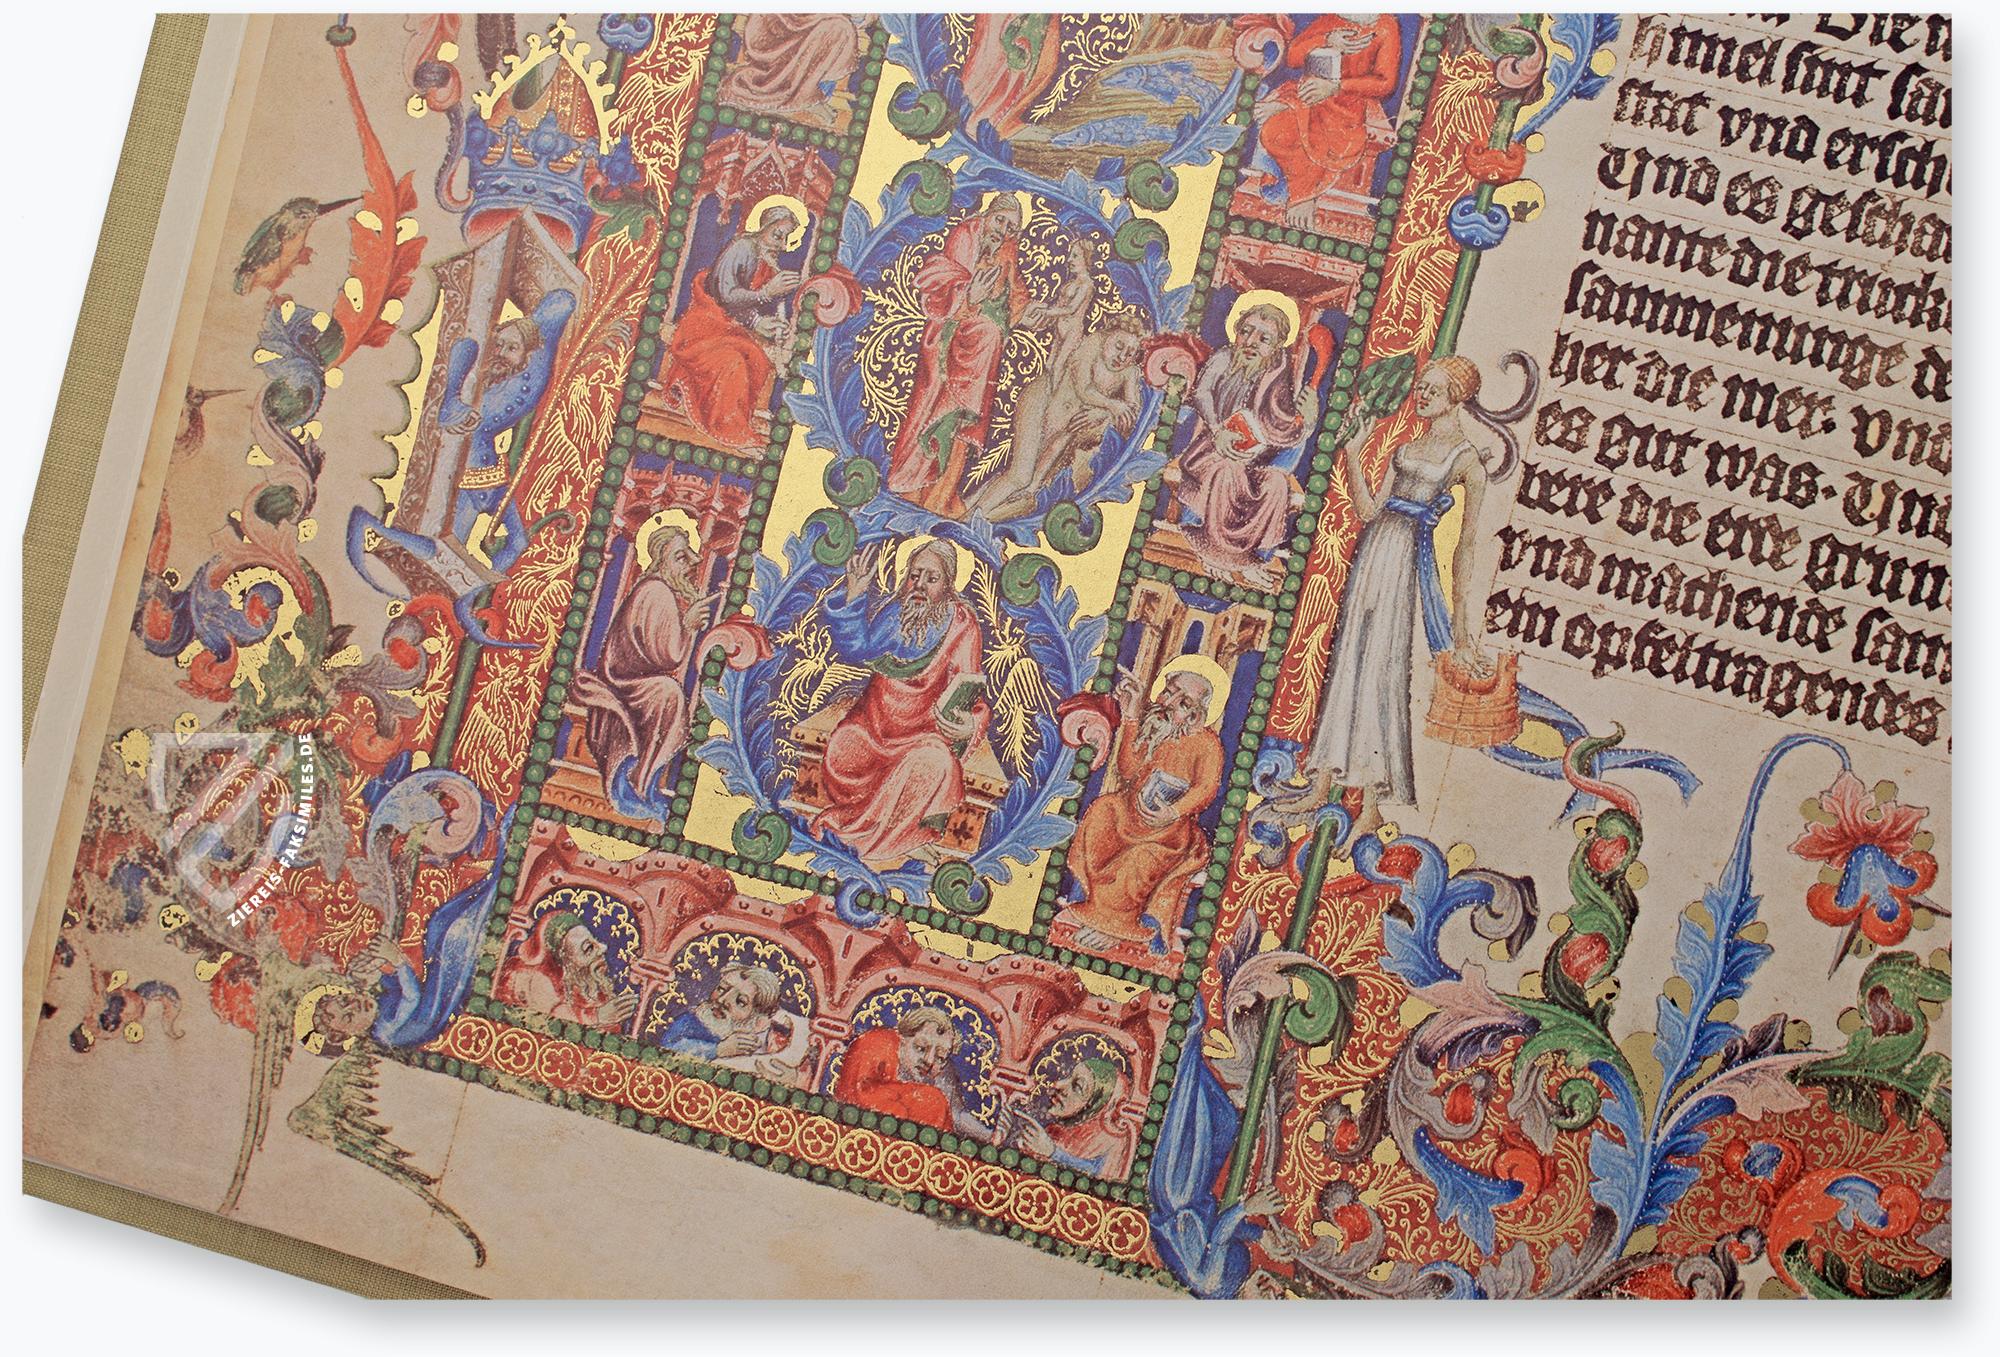 himel sint
stat vnd ersch
Vnd es geschah
nante die trucke
sammenunge de
her die mer· vnd
es gut was· Vnd
bere die erde grun
vnd machende sam
ein opfeltragendes
ZIEREIS-FAKSIMILES.DE